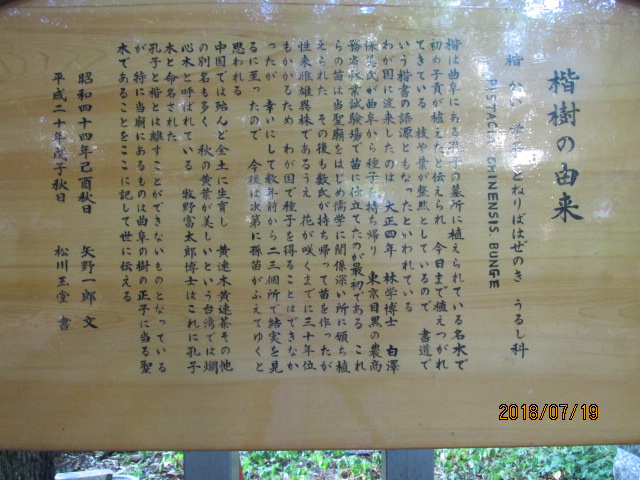 楷樹の由来
楷 かい 学名 とねりばはぜのき うるし科
PISTACIA CHINENSIS BUNGE
楷は曲阜にある孔子の墓所に植えられている名木で
初め子貢が植えたと伝えられ 今日まで植えつがれ
てきている 枝や葉が整然としているので 書道で
いう楷書の語源ともなったといわれている
わが国に渡来したのは 大正四年 林学博士 白澤
保美氏が曲阜から種子を持ち帰り 東京目黒の農商
務省林業試験場で苗に仕立てたのが最初である これ
らの苗は当聖廟をはじめ儒学に関係深い所に頒ち植
えられた その後も数氏が持ち帰って苗を作ったが
性来雌雄異株であるうえ 花が咲くまでに三十年位
もかかるため わが国で種子を得ることはできなか
ったが 幸いにして数年前から二三個所で結実を見
るに至ったので 今後は次第に孫苗がふえてゆくと
思われる
中国では殆んど全土に生育し 黄連木黄連茶その他
の別名も多く 秋の黄葉が美しいという台湾では爛
心木と呼ばれている 牧野富太郎博士はこれに孔子
木と命名された
孔子と楷とは離すことができないものとなっている
が 特に当廟にあるものは曲阜の樹の正子に当る聖
木であることをここに記して世に伝える
昭和四十四年己酉秋日 矢野一郎 文
平成二十年戊子秋日 松川玉堂 書
2018/07/19